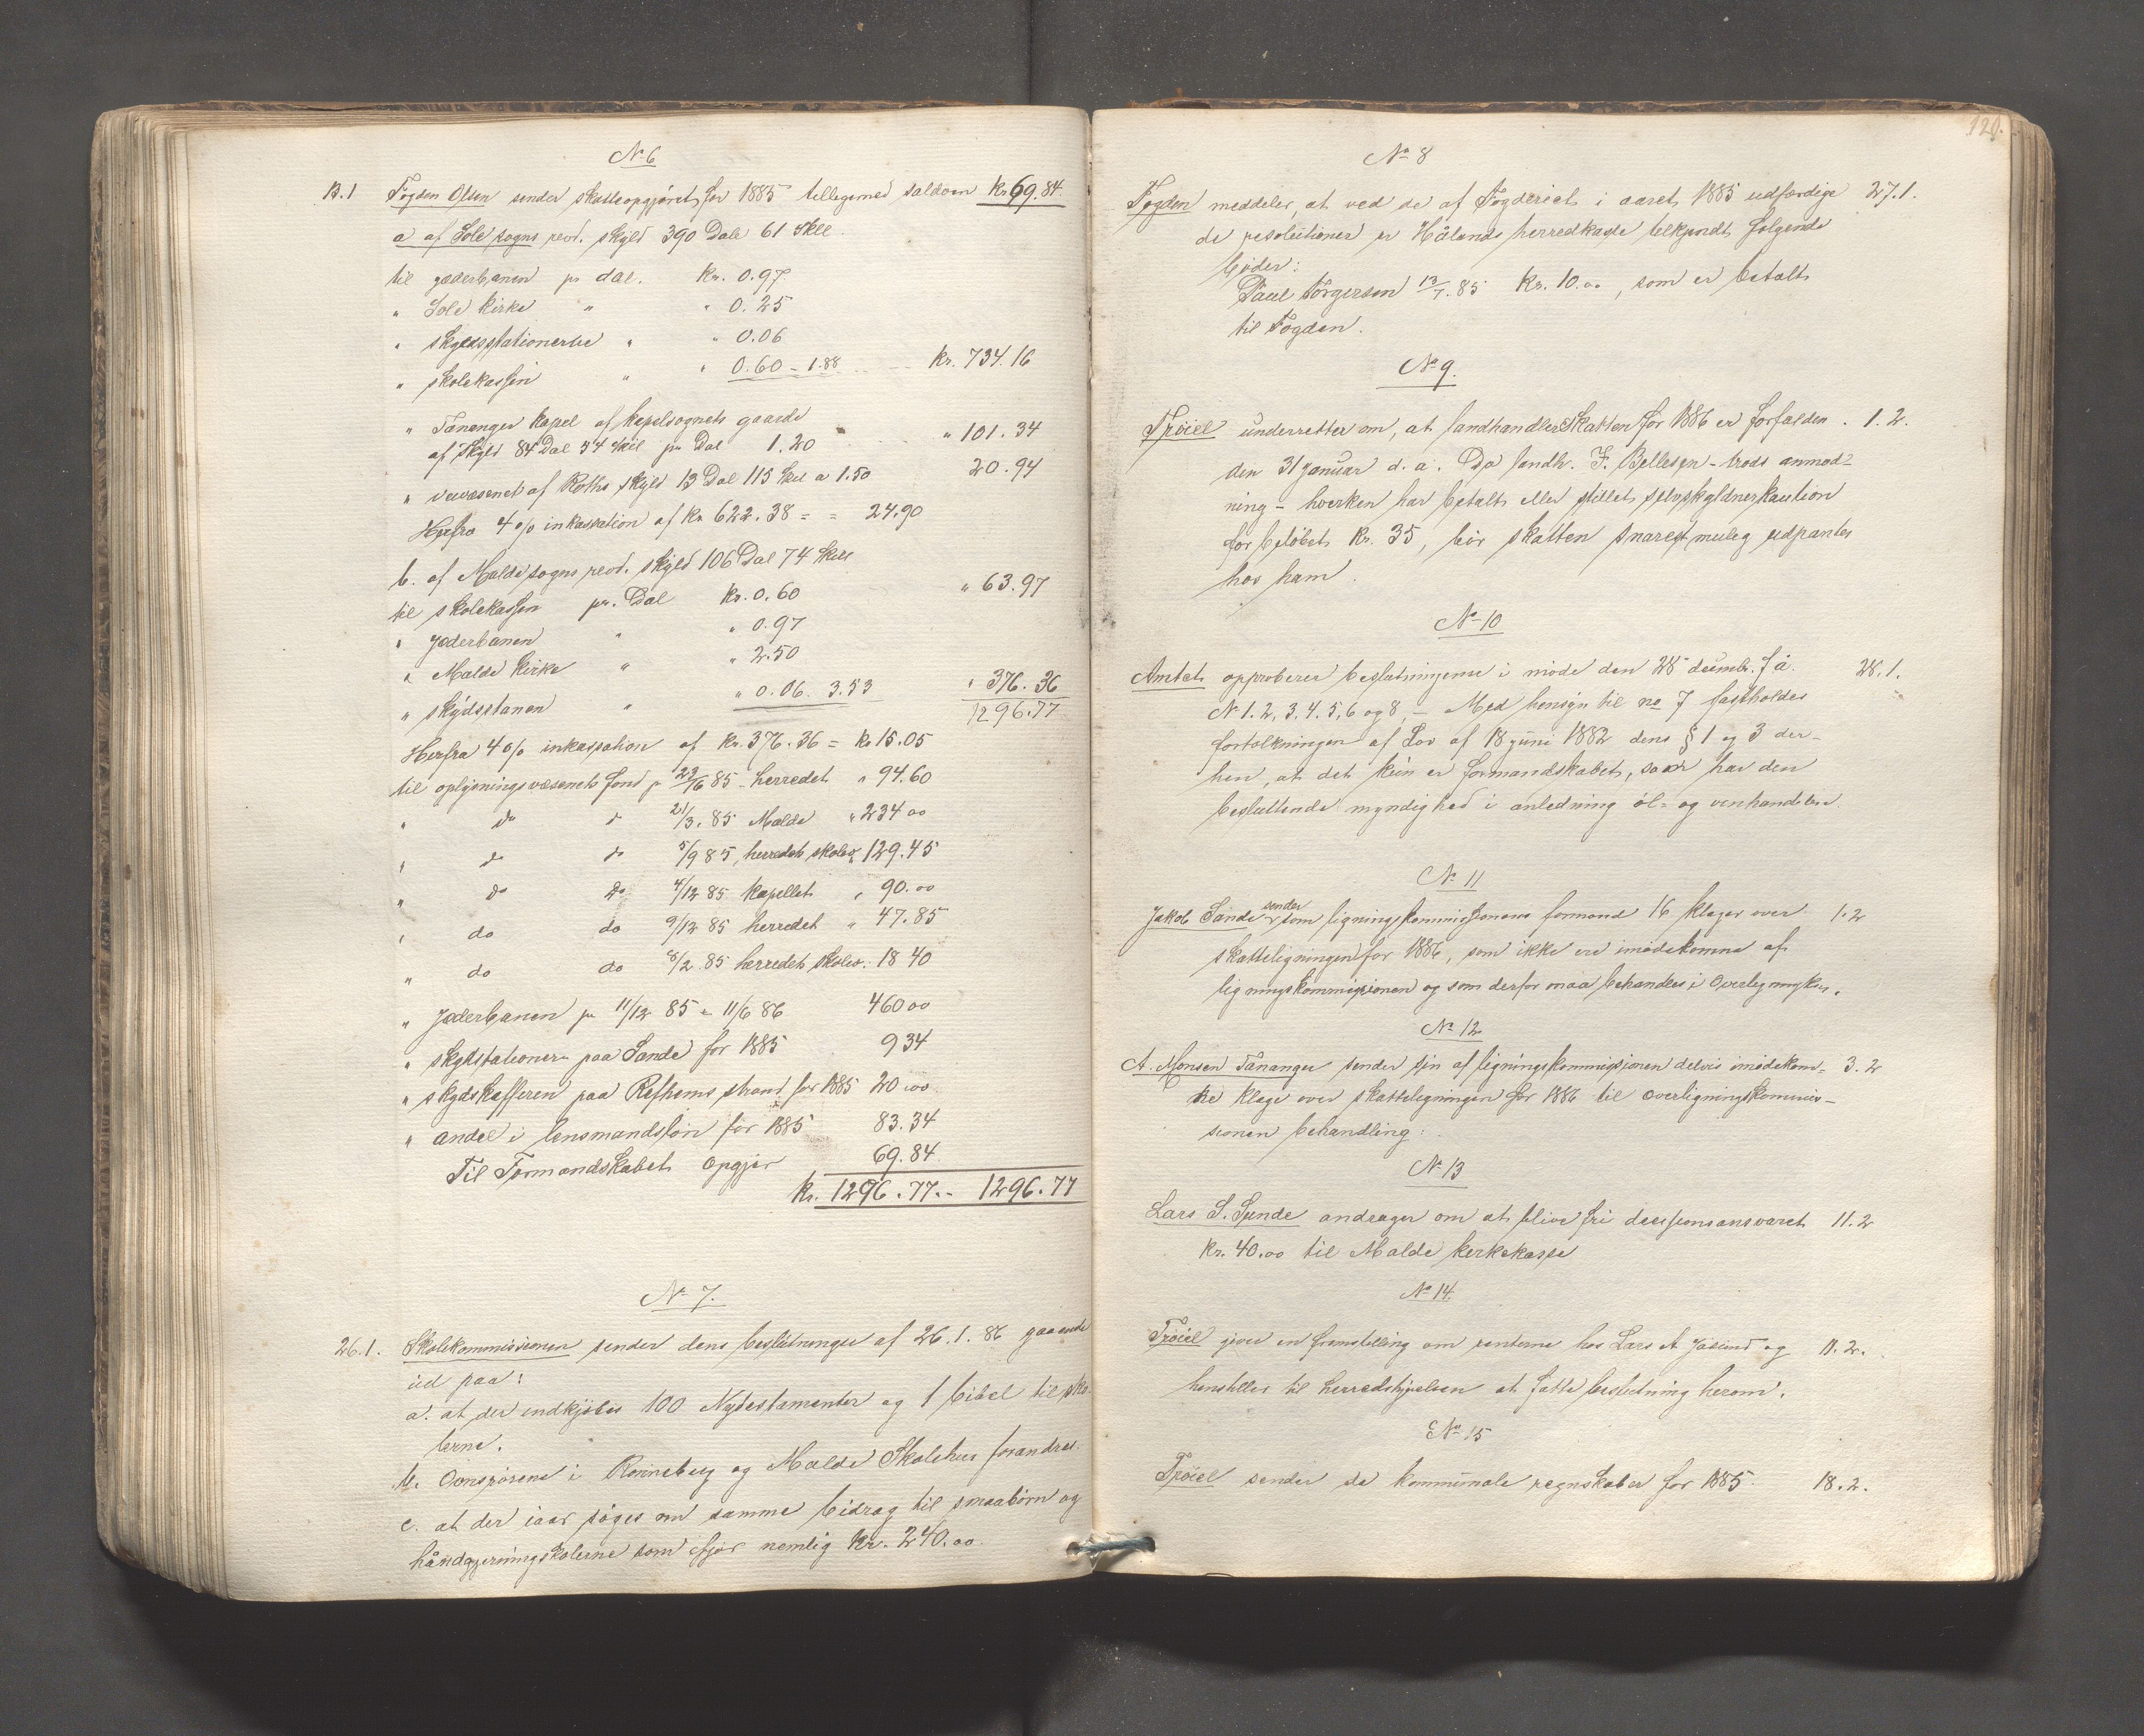 No 6
13.1 Fogden Olsen sender skatteopgjöret for 1885 tilligemed saldoen kr 69.84.
a af Sole sogns revd. skyld 390 Dale 61 Skll.
til jæderbanen pr dal. Kr. 0.97
" Sole kirke " " 0.25
" skydsstationerne " " 0.06
" skolekassen " " 0.60 - 1.88 kr. 734.16
" Tananger kapel af kapelsognets gaarde
af skyld 84 Dal 54 skil pr Dal 1.20 " 101.34
" veivæsenet af Roths skyld 13 Dal 115 skil a 1.50 20.94
Herfra 4 o/o inkassation af kr 622.38 = = 24.90
b. af Malde sogns revd. skyld 106 Dal 74 skll
til skolekassen pr. Dal Kr. 0.60 " 63.97
" Jæderbanen " " 0.97
" Malde kirke " " 2.50
" skydsstanen " " 0.06. 3.53 " 376.36
1296.77
Herfra 4 o/o inkassation af Kr. 376.36 = kr 15.05
til oplysningsvæsenets fond pr 22/6 85 - herredet " 94.60
" do do 21/3. 85 Malde " 234 00
" do do 5/9 85, herredets skolev. 129.45
" do do 4/12 85 kapellet " 90.00
" do do 9/12 85 herredet " 47.85
" do do 8/2. 85 herredets skolev. 18 40
" Jæderbanen pr 11/12 85 - 11/6 86 460 00
" skydsstationer paa Sande for 1885 9 34
" skydskafferen paa Ræfhems strand for 1885 20.00
" andel i lensmandslön för 1885 83.34
Til Formandskabets opgjör 69.84
Kr. 1296.77.- 1296.77
No 7.
26.1. Skolekommissionen sender dens beslutninger af 26.1.86 gaaende
ud paa:
a. at der indkjöbes 100 Nytestamenter og 1 bibel til sko-
lerne.
b. Ovnsrörene i Rönneberg og Malde Skolehus forandres.
c. at der iaar söges om samme bidrag til smaabörn og
håndgjerningskolerne som ifjor nemlig Kr. 240.00.
120.
No 8
Fogden meddeler, at ved de af Fogderiet i aaret 1885 udfærdige 27.1.
de resolutioner er Hålands herredkasse tilkjendt følgende
böder:
Paul Torgersen 13/7.85 Kr. 10.00, som er betalt
til Fogden.
No 9.
Tröiel underretter om, at landhandlerskatten for 1886 er forfalden. 1.2.
den 31 januar d.a. Da landh. F. Bellesen - trods anmod-
ning - hverken har betalt eller stillet selvskyldnerkaution
for belöbet Kr. 35, bör skatten snarest mulig udpantes
hos ham.
No 10
Amtet approberer beslutningerne i möde den 28 decembr. f.å. 28.1.
No 1.2.3.4.5.6 og 8, - Med hensyn til no 7 fastholdes
fortolkningen af Lov af 18 juni 1882 dens § 1 og 3 der-
hen, at det kun er formandskabet, som har den
besluttende myndighed i anledning öl- og vinhandelen.
No 11
Jakob Sande sender som ligningskommissionens formand 16 klager over 1.2
skatteligningen for 1886, som ikke ere imödekomne af
ligningskommissionen og som derfor maa behandles i overligningskm.
No 12
A. Monsen Tananger sender sin af ligningskommissionen delvis imödekom- 3.2
ne klage over skatteligningen for 1886 til overligningskommis-
sionens behandling.
No 13
Lars S. Sunde andrager om at blive fri decisionsansvaret 11.2
Kr. 40.00 til Malde kirkekasse
No 14.
Tröiel giver en fremstilling om renterne hos Lars A Jåsund og 11.2.
henstiller til herredstyrelsen at fatte beslutning herom.
No 15
Tröiel sender de kommunale regnskaber for 1885. 18.2.